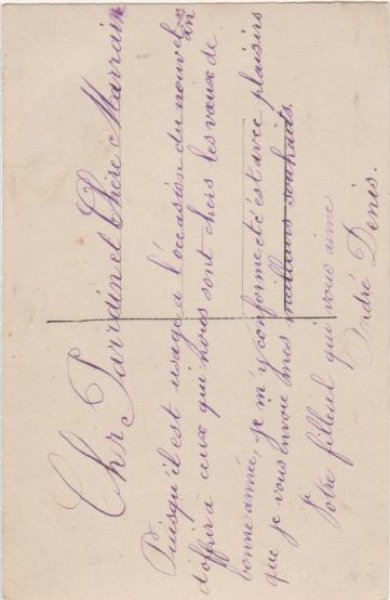 Cher Parrain et Chère Marraine
Puisqu'il est usage a l'occasion du nouvel an
d'offrir à ceux qui nous sont chers les vœux de
bonne année, je m'y conforme et c'est avec plaisirs
que je vous envoie mes meilleurs souhaits.
Votre filleul qui vous aime
André Denis.